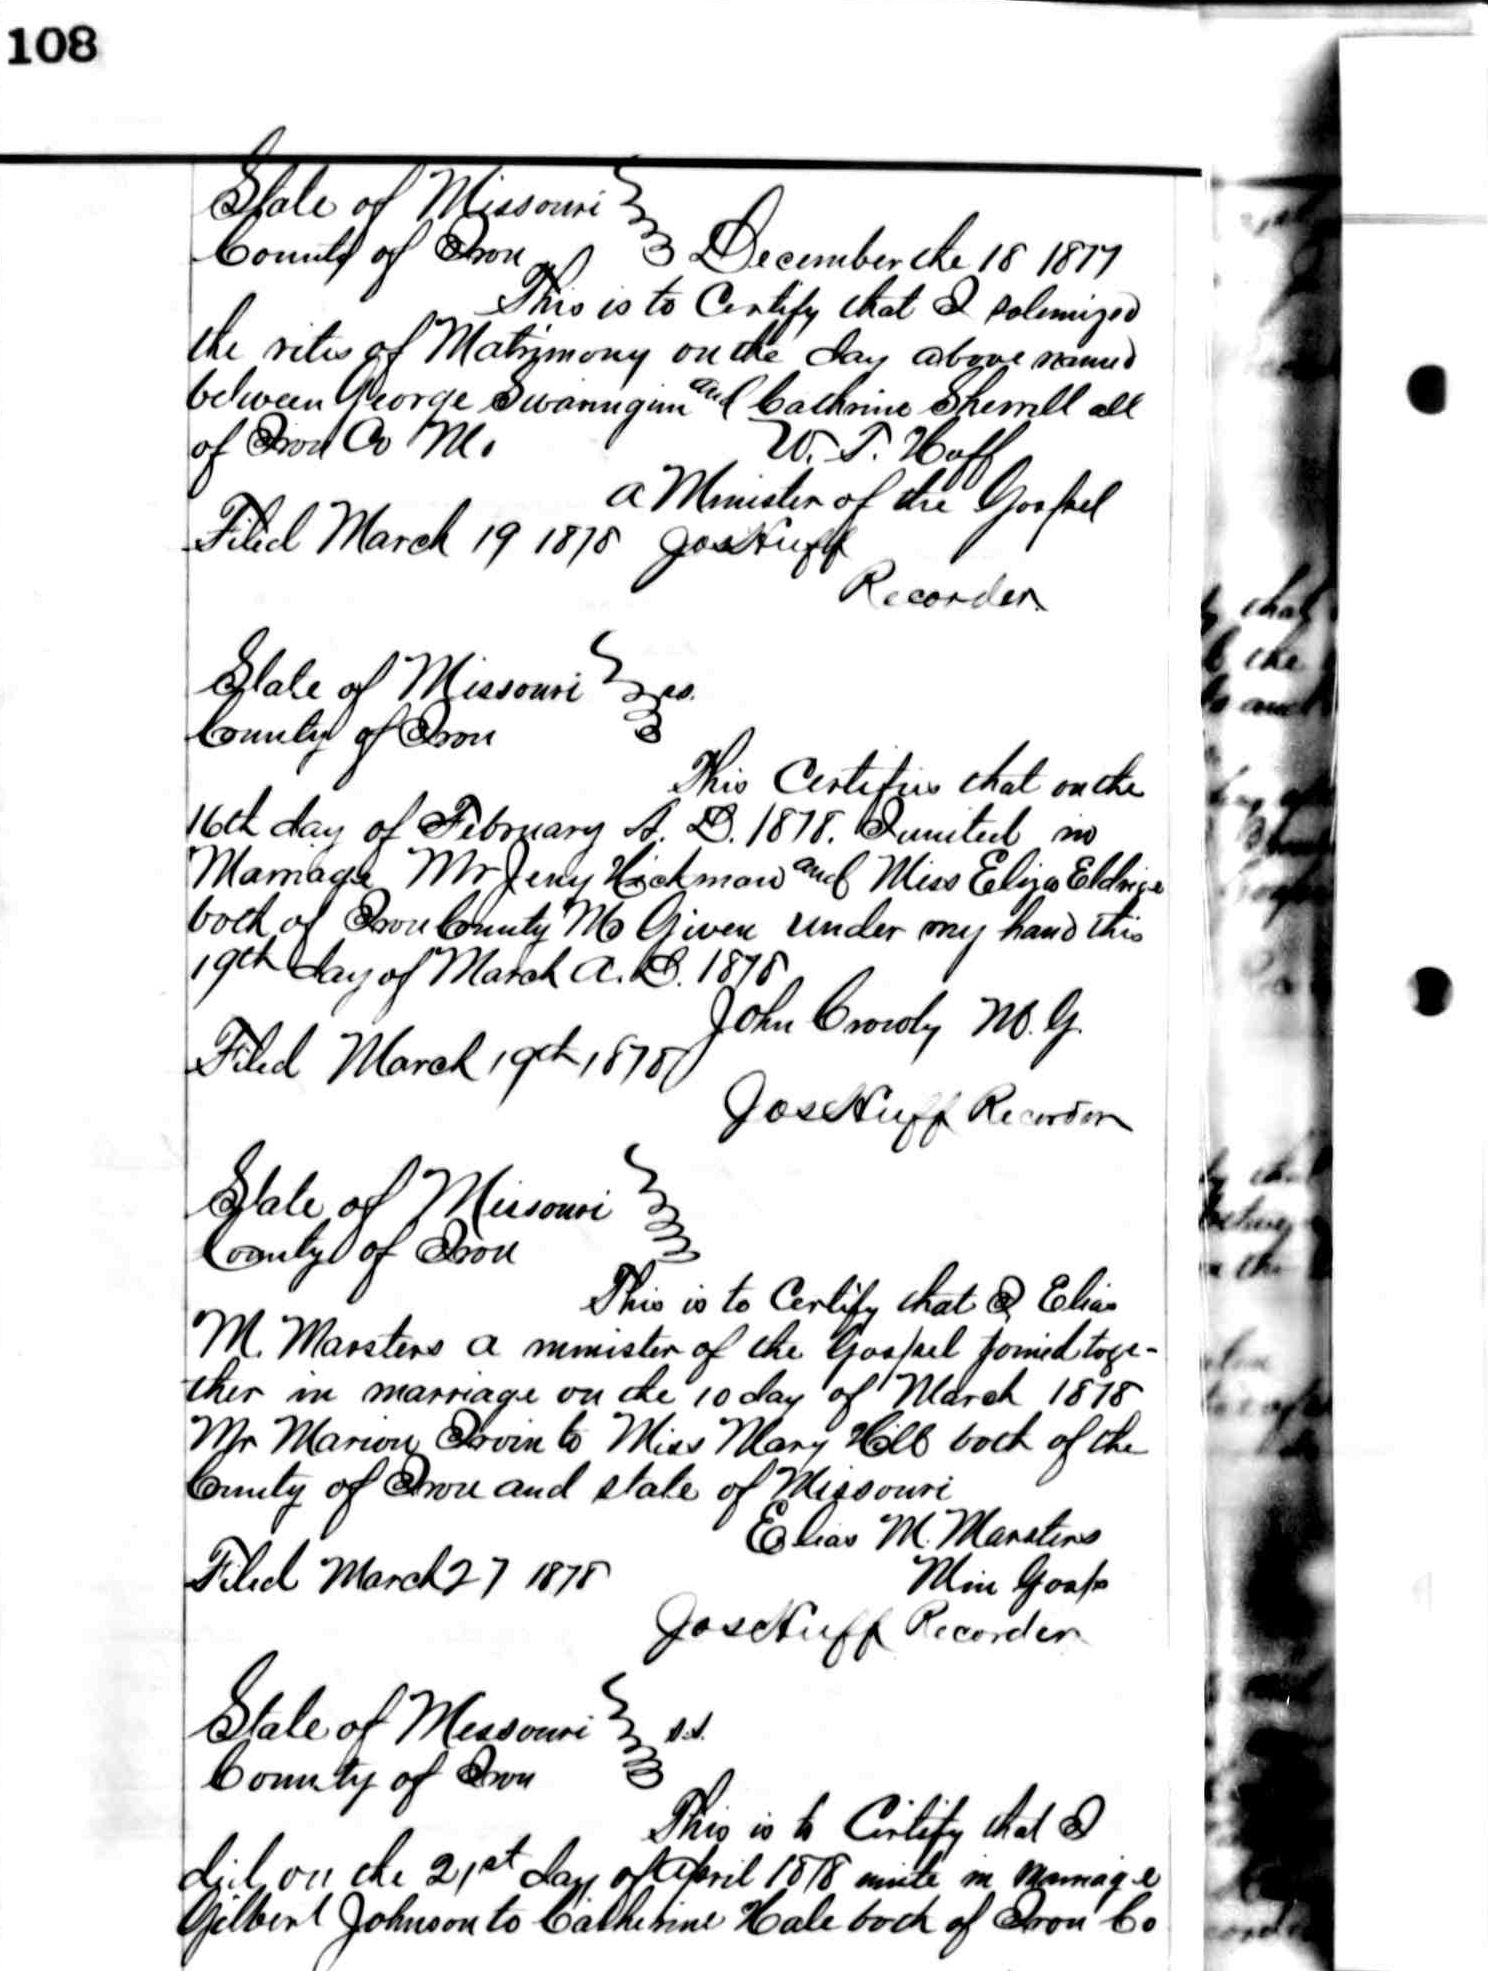 108
State of Missouri
County of Iron December the 18 1877
This is to Certify that I solemized
the rites of Matrimony on the day above named
between George Swannginn and Cathrine Sherrill all
of Iron Co Mo
W. T. Huff
a Minister of the Gospel
Filed March 19 1878 Jos Huff
Recorder
State of Missouri ss.
County of Iron
This Certifies that on the
16th day of February A. D. 1878. I united in
Marriage Mr Jerry Hickman and Miss Eliza Eldrige
both of Iron County Mo Given under my hand this
19th day of March A. D. 1878
John Crowdy M. G.
Filed March 19th 1878
Jos Huff Recorder
State of Missouri
County of Iron
This is to Certify that I Elias
M. Marsters a minister of the Gospel joined toge-
ther in marriage on the 10 day of March 1878
Mr Marion Irvin to Miss Mary Hill both of the
County of Iron and state of Missouri
Elias M. Marsters
Filed March 27 1878 Min Gosp
Jos Huff Recorder
State of Missouri s.s.
County of Iron
This is to Certify that I
did on the 21st day of April 1878 unite in marriage
Gilbert Johnson to Catherine Hale both of Iron Co